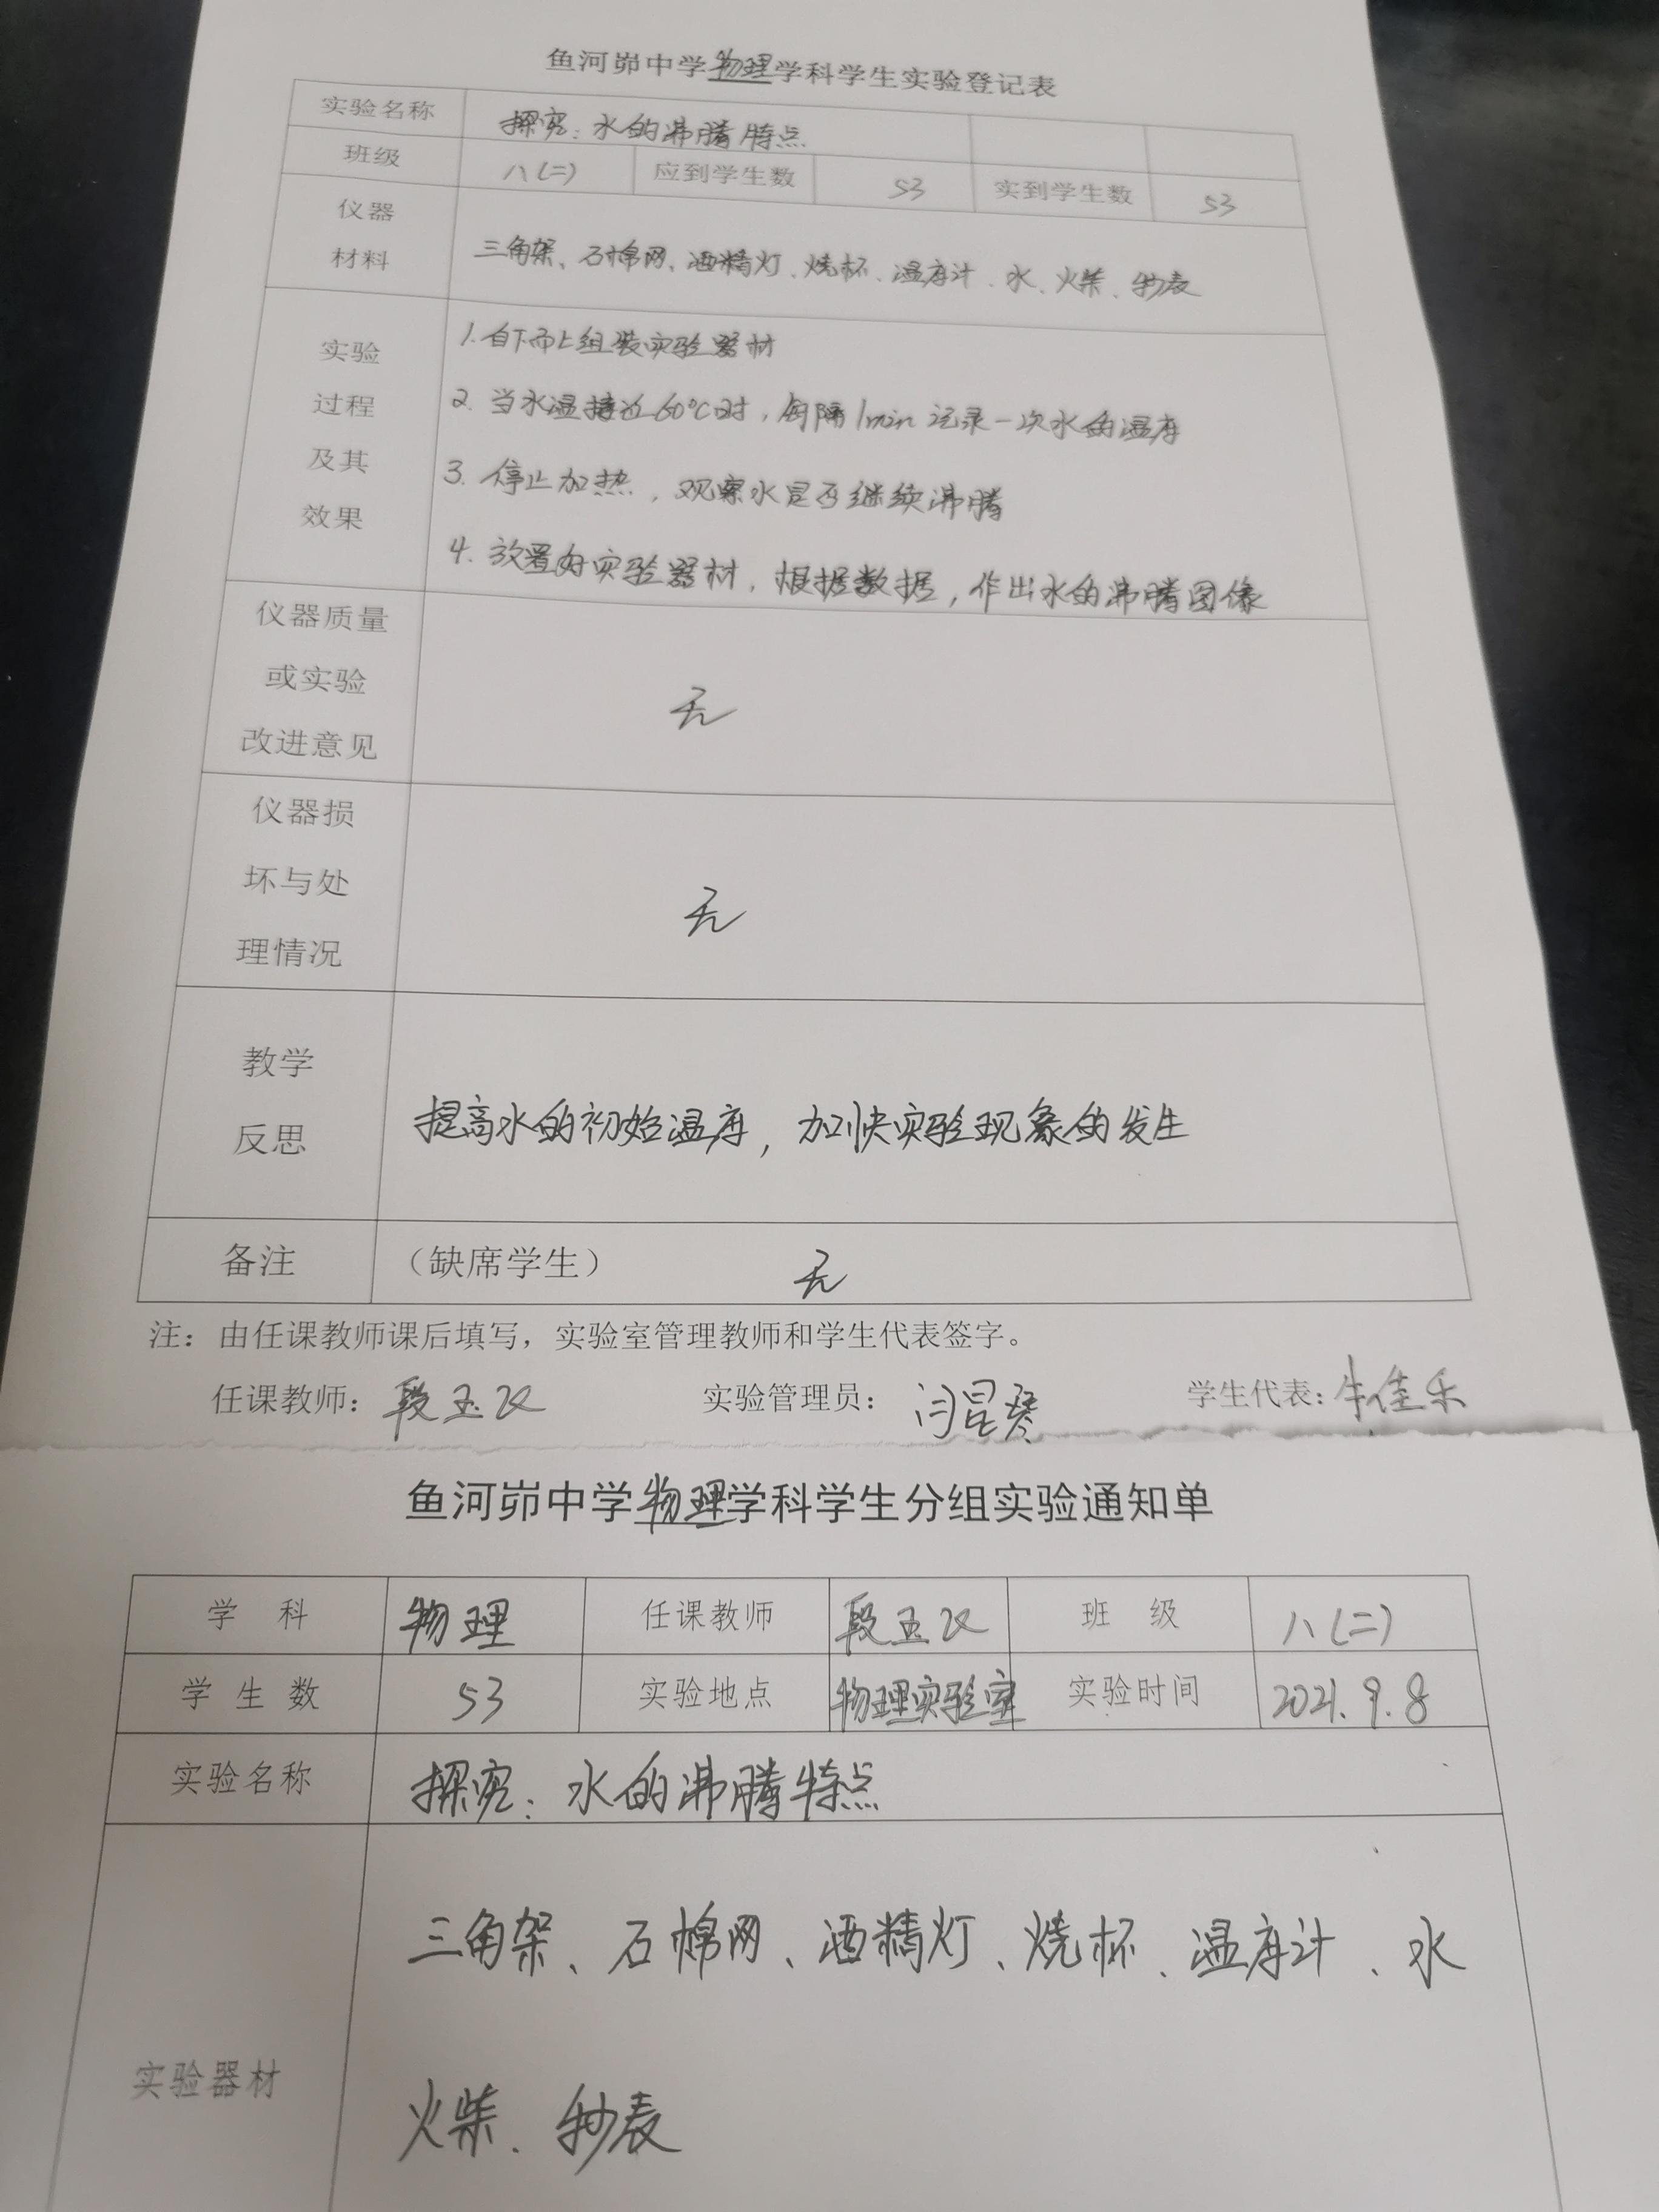 鱼河峁中学物理学科学生实验登记表
实验名称 探究：水的沸腾特点
班级 八(二) 应到学生数 53 实到学生数 53
仪器
材料
三角架、石棉网、酒精灯、烧杯、温度计、水、火柴、秒表
实验
过程
及其
效果
1. 自下而上组装实验器材
2. 当水温接近60℃时，每隔1min记录一次水的温度
3. 停止加热，观察水是否继续沸腾
4. 放置好实验器材，根据数据，作出水的沸腾图像
仪器质量
或实验
改进意见
无
仪器损
坏与处
理情况
无
教学
反思
提高水的初始温度，加快实验现象的发生
备注 （缺席学生） 无
注：由任课教师课后填写，实验室管理教师和学生代表签字。
任课教师：段玉 实验管理员：闫昆琴 学生代表：牛佳乐
鱼河峁中学物理学科学生分组实验通知单
学 科 物理 任课教师 段玉 班 级 八(二)
学 生 数 53 实验地点 物理实验室 实验时间 2021.9.8
实验名称 探究：水的沸腾特点
实验器材
三角架、石棉网、酒精灯、烧杯、温度计、水
火柴、秒表